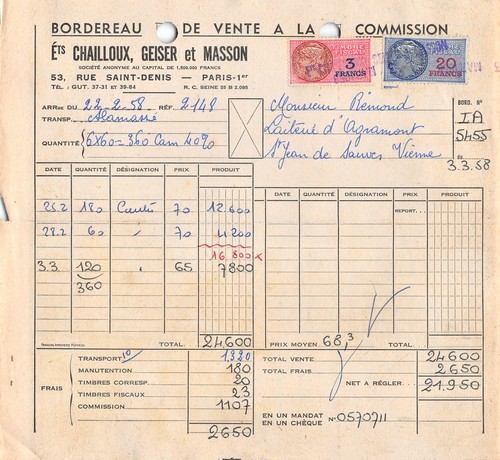 BORDEREAU DE VENTE A LA COMMISSION
Éts CHAILLOUX, GEISER et MASSON
SOCIÉTÉ ANONYME AU CAPITAL DE 1.500.000 FRANCS
53, RUE SAINT-DENIS — PARIS-1er
TÉL.: GUT. 37-31 ET 39-84 R. C. SEINE 55 B 2.085
TIMBRE FISCAL
3 FRANCS
20 FRANCS
ARRée DU 22-2-58 RÉF. 2148
TRANSP.
QUANTITÉ 6X60=360 Cam 40%
Monsieur Rémond
Laiterie d'Agramont
St Jean de Sauves Vienne
BORD. N°
IA
5455
3.3.58
DATE QUANTITÉ DÉSIGNATION PRIX PRODUIT
25.2 180 70 12.600
28.2 60 " 70 4200
16.800 x
3.3. 120 " 65 7800
360
TOTAL. 24600
DATE QUANTITÉ DÉSIGNATION PRIX PRODUIT
REPORT
PRIX MOYEN 68,3 TOTAL.
FRAIS
TRANSPORT 10 1.320
MANUTENTION 180
TIMBRES CORRESP. 20
TIMBRES FISCAUX 23
COMMISSION 1107
2650
TOTAL VENTE 24600
TOTAL FRAIS 2650
NET A RÉGLER 21.950
EN UN MANDAT
EN UN CHÈQUE N° 0570711